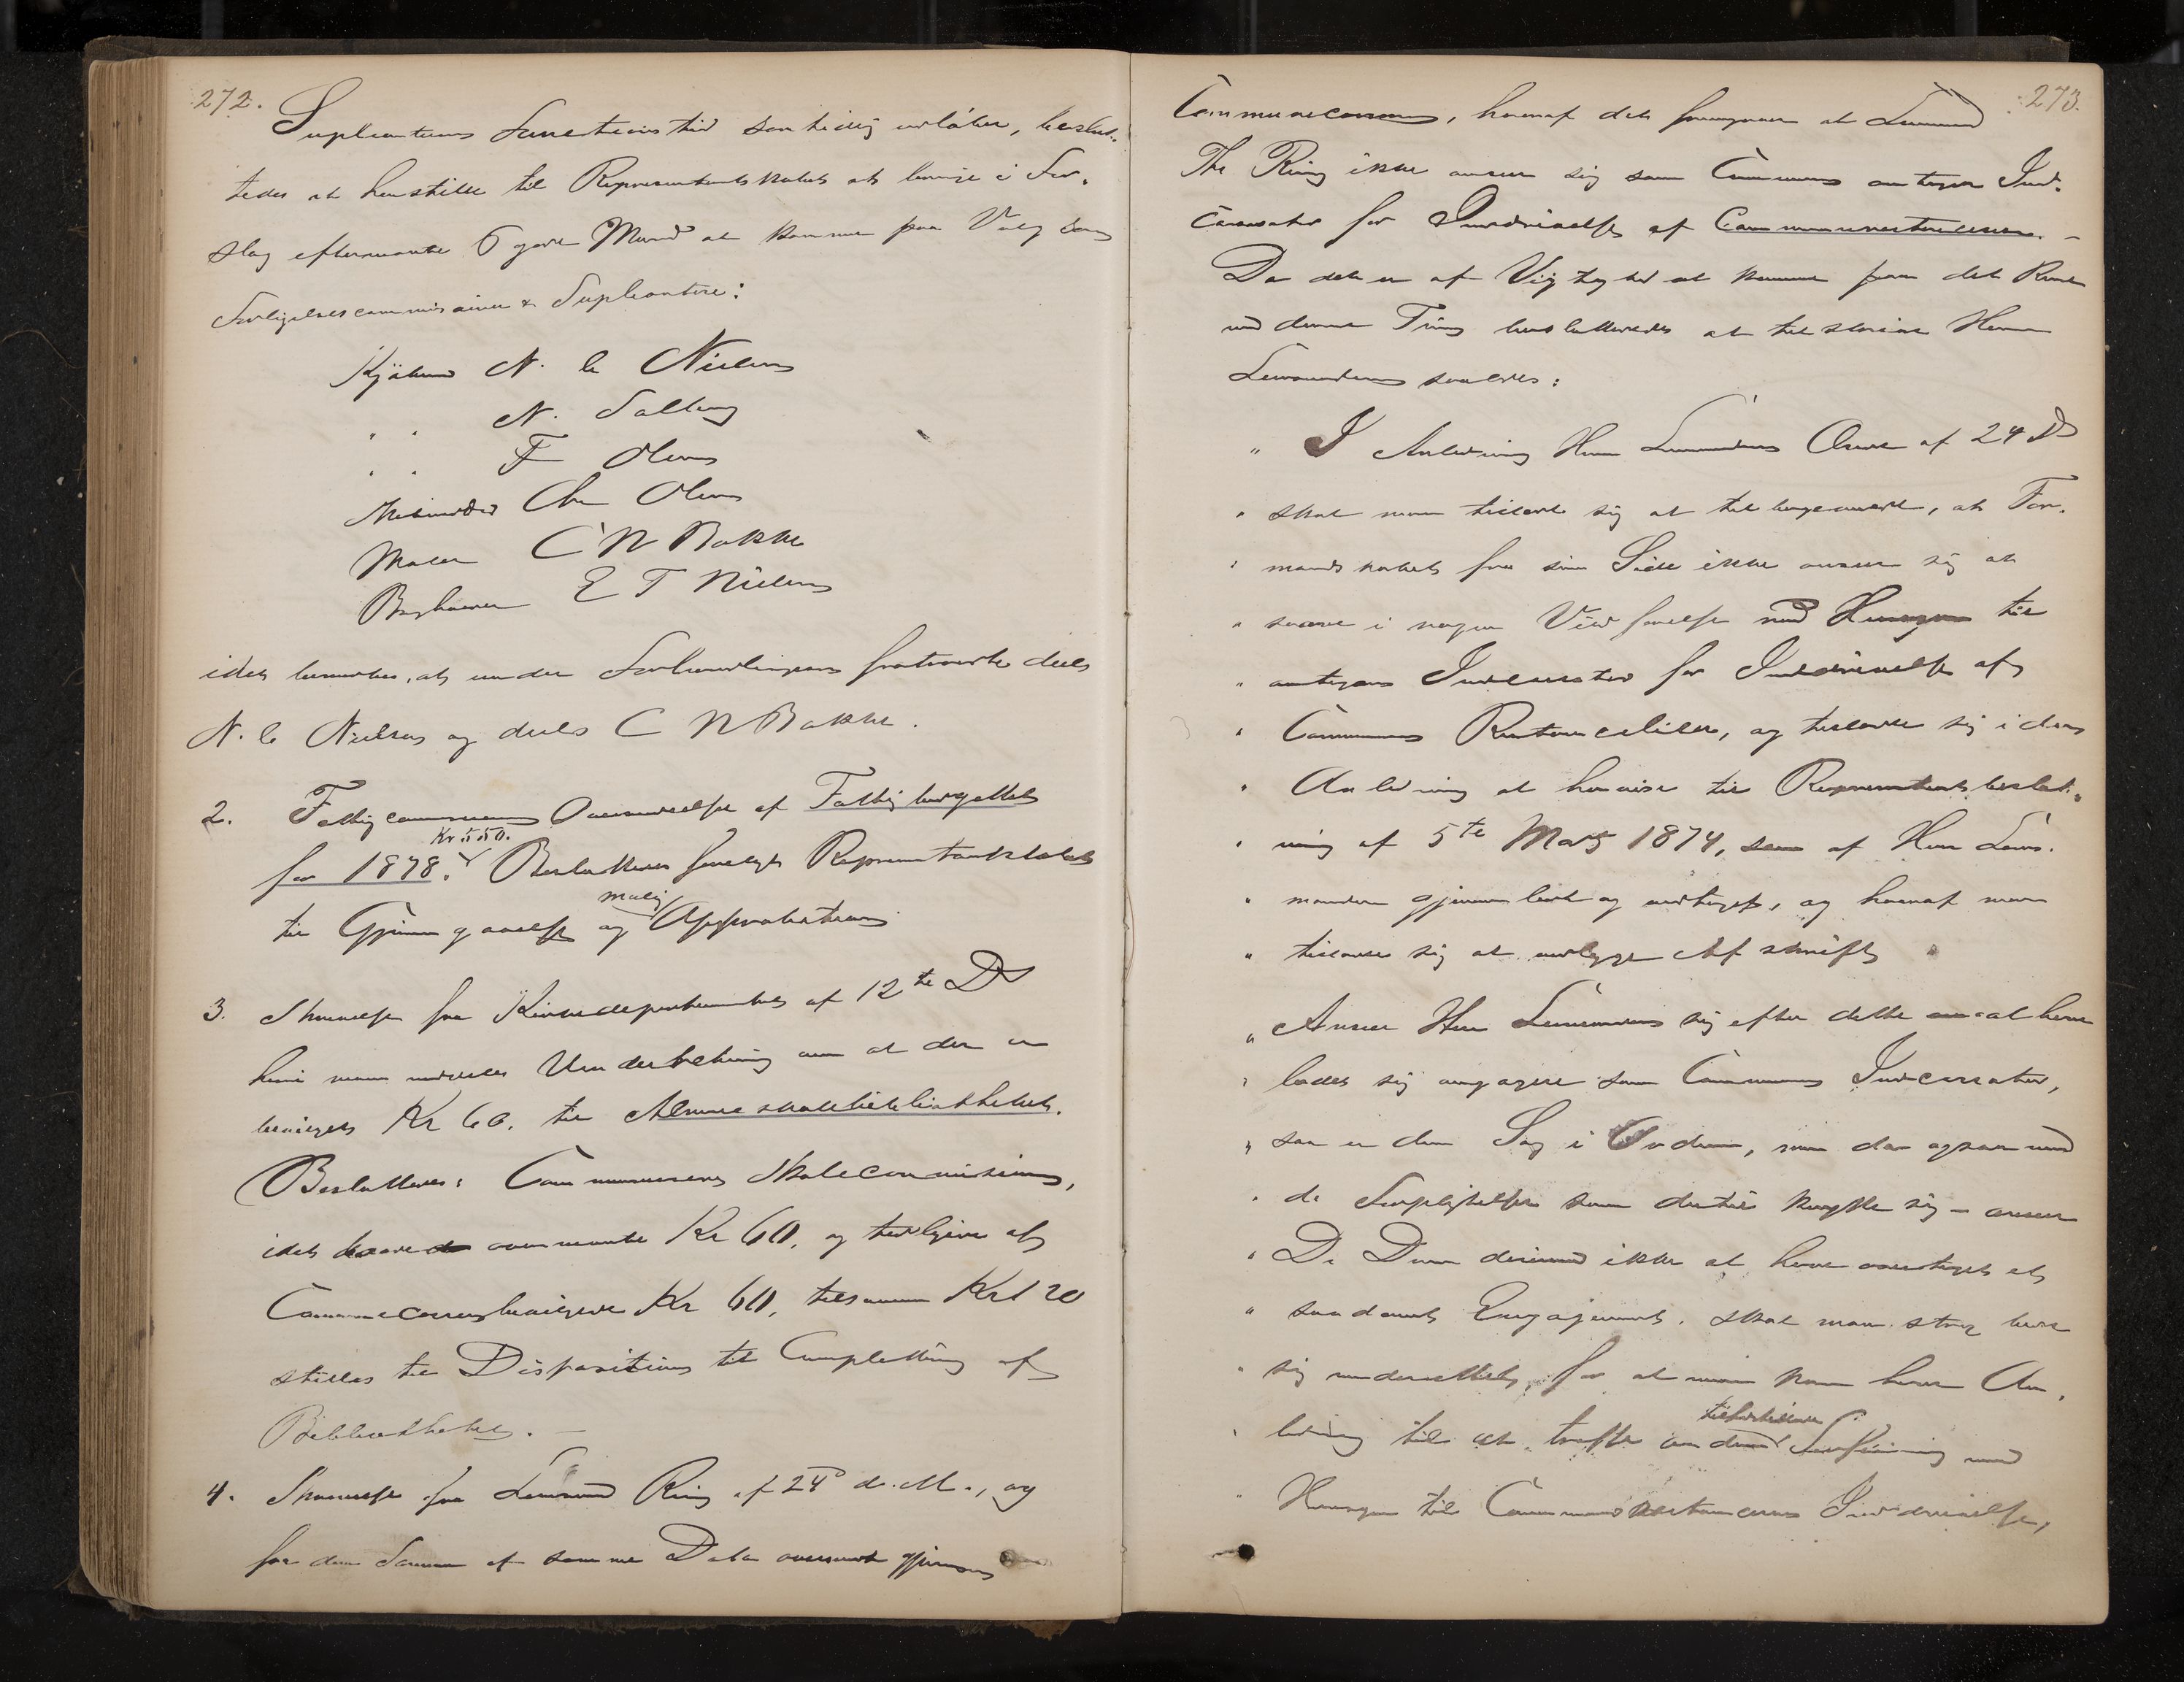 272.
Supleanternes Functionstid samtidig udløber, beslut-
tedes at henstille til Representantskabet at bringe i For-
slag efternævnte 6 gode Mænd at komme paa Valg som
Forligelsescommisairer & Supleantere:
Kjøbmd N. C. Nielsen
" " N. Salberg
" " F Olsen
Chr Olsen
Maler C N Bakke
Boghandler E T Nielsen
idet bemærkes, at under Forhandlingerne fratraadte deels
N. C. Nielsen og deels C N Bakke.
2. Fattigcommissionens Oversendelse af Fattigbudgettet
Kr 550.
for 1878. Besluttedes forelagt Representantskabet
til Gjennemgaaelse og mulig Approbation
3. Skrivelse fra Kirkedepartementet af 12te Ds
hvori man meddeles Underretning om at der er
bevilget Kr 60. til Almueskolebibliotheket.
Besluttedes: Communens Skolecommission,
idet ovennævnte Kr 60, og tidligere af
Communecassen bevilgede Kr 60, tilsammen Kr 120
stilles til Disposition til Completting af
Bibliotheket. —
4. Skrivelse fra Lensmand Ring af 24de d. M., og
fra den Samme af samme Dato oversendt gjennem
273.
Communecassereren, hvoraf det fremgaaer at Lensmand
Thr Ring ikke anser sig som Communens antagne Ind-
cassator for Inddrivelse af Communerestancerne. —
Da det er af Vigtighed at komme paa det Rene
med denne Ting besluttedes at tilskrive Herr
Lensmanden saaledes:
" I Anledning Herr Lensmandens Skrivelse af 24 Ds
" skal man tillade sig at tilbagemelde, at For-
" mandskabet fra sin Side ikke anser sig at
" svæve i nogen Vildfarelse med Hensyn til
" antagen Indcassator for Inddrivelse af
" Communens Restancelister, og tillader sig i den
" Anledning at henvise til Representantbeslut-
" ning af 5te Mars 1874, som af Herr Lens-
" manden gjennemlæst og vedtaget, og hvoraf man
" tillader sig at vedlægge Afskrift
" Anser Herr Lensmanden sig efter dette at have
" ladet sig engagere som Communens Indcassator,
" saa er den Sag i Orden, men da ogsaa med
" de Forpligtelser som dertil knytte sig – anser
" De Dem derimod ikke at have overtaget et
" saadant Engagement, skal man strax bede
" sig underrettet, for at man kan have An-
" ledning til at træffe anden tilfredsstillende Forføining med
" Hensyn til Communerestancernes Inddrivelse,